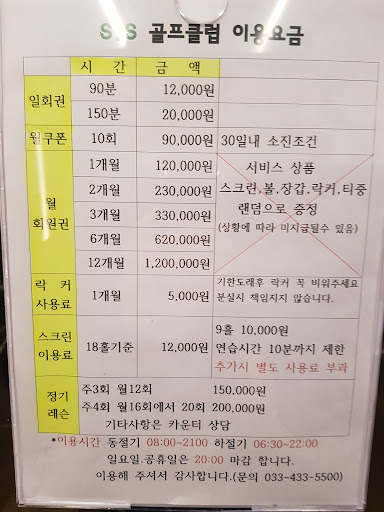 S.S 골프클럽 이용요금
시 간 금 액
일회권 90분 12,000원
150분 20,000원
월쿠폰 10회 90,000원 30일내 소진조건
월 회원권 1개월 120,000원 서비스 상품
2개월 230,000원 스크린,볼,장갑,락커,티중
3개월 330,000원 랜덤으로 증정
6개월 620,000원 (상황에 따라 미지급될수 있음)
12개월 1,200,000원
락 커 사용료 1개월 5,000원 기한도래후 락커 꼭 비워주세요
분실시 책임지지 않습니다.
스크린 이용료 18홀기준 12,000원 9홀 10,000원
연습시간 10분까지 제한
추가시 별도 사용료 부과
정기 레슨 주3회 월12회 150,000원
주4회 월16회에서 20회 200,000원
기타사항은 카운터 상담
*이용시간 동절기 08:00~2100 하절기 06:30~22:00
일요일.공휴일은 20:00 마감 합니다.
이용해 주셔서 감사합니다.(문의 033-433-5500)